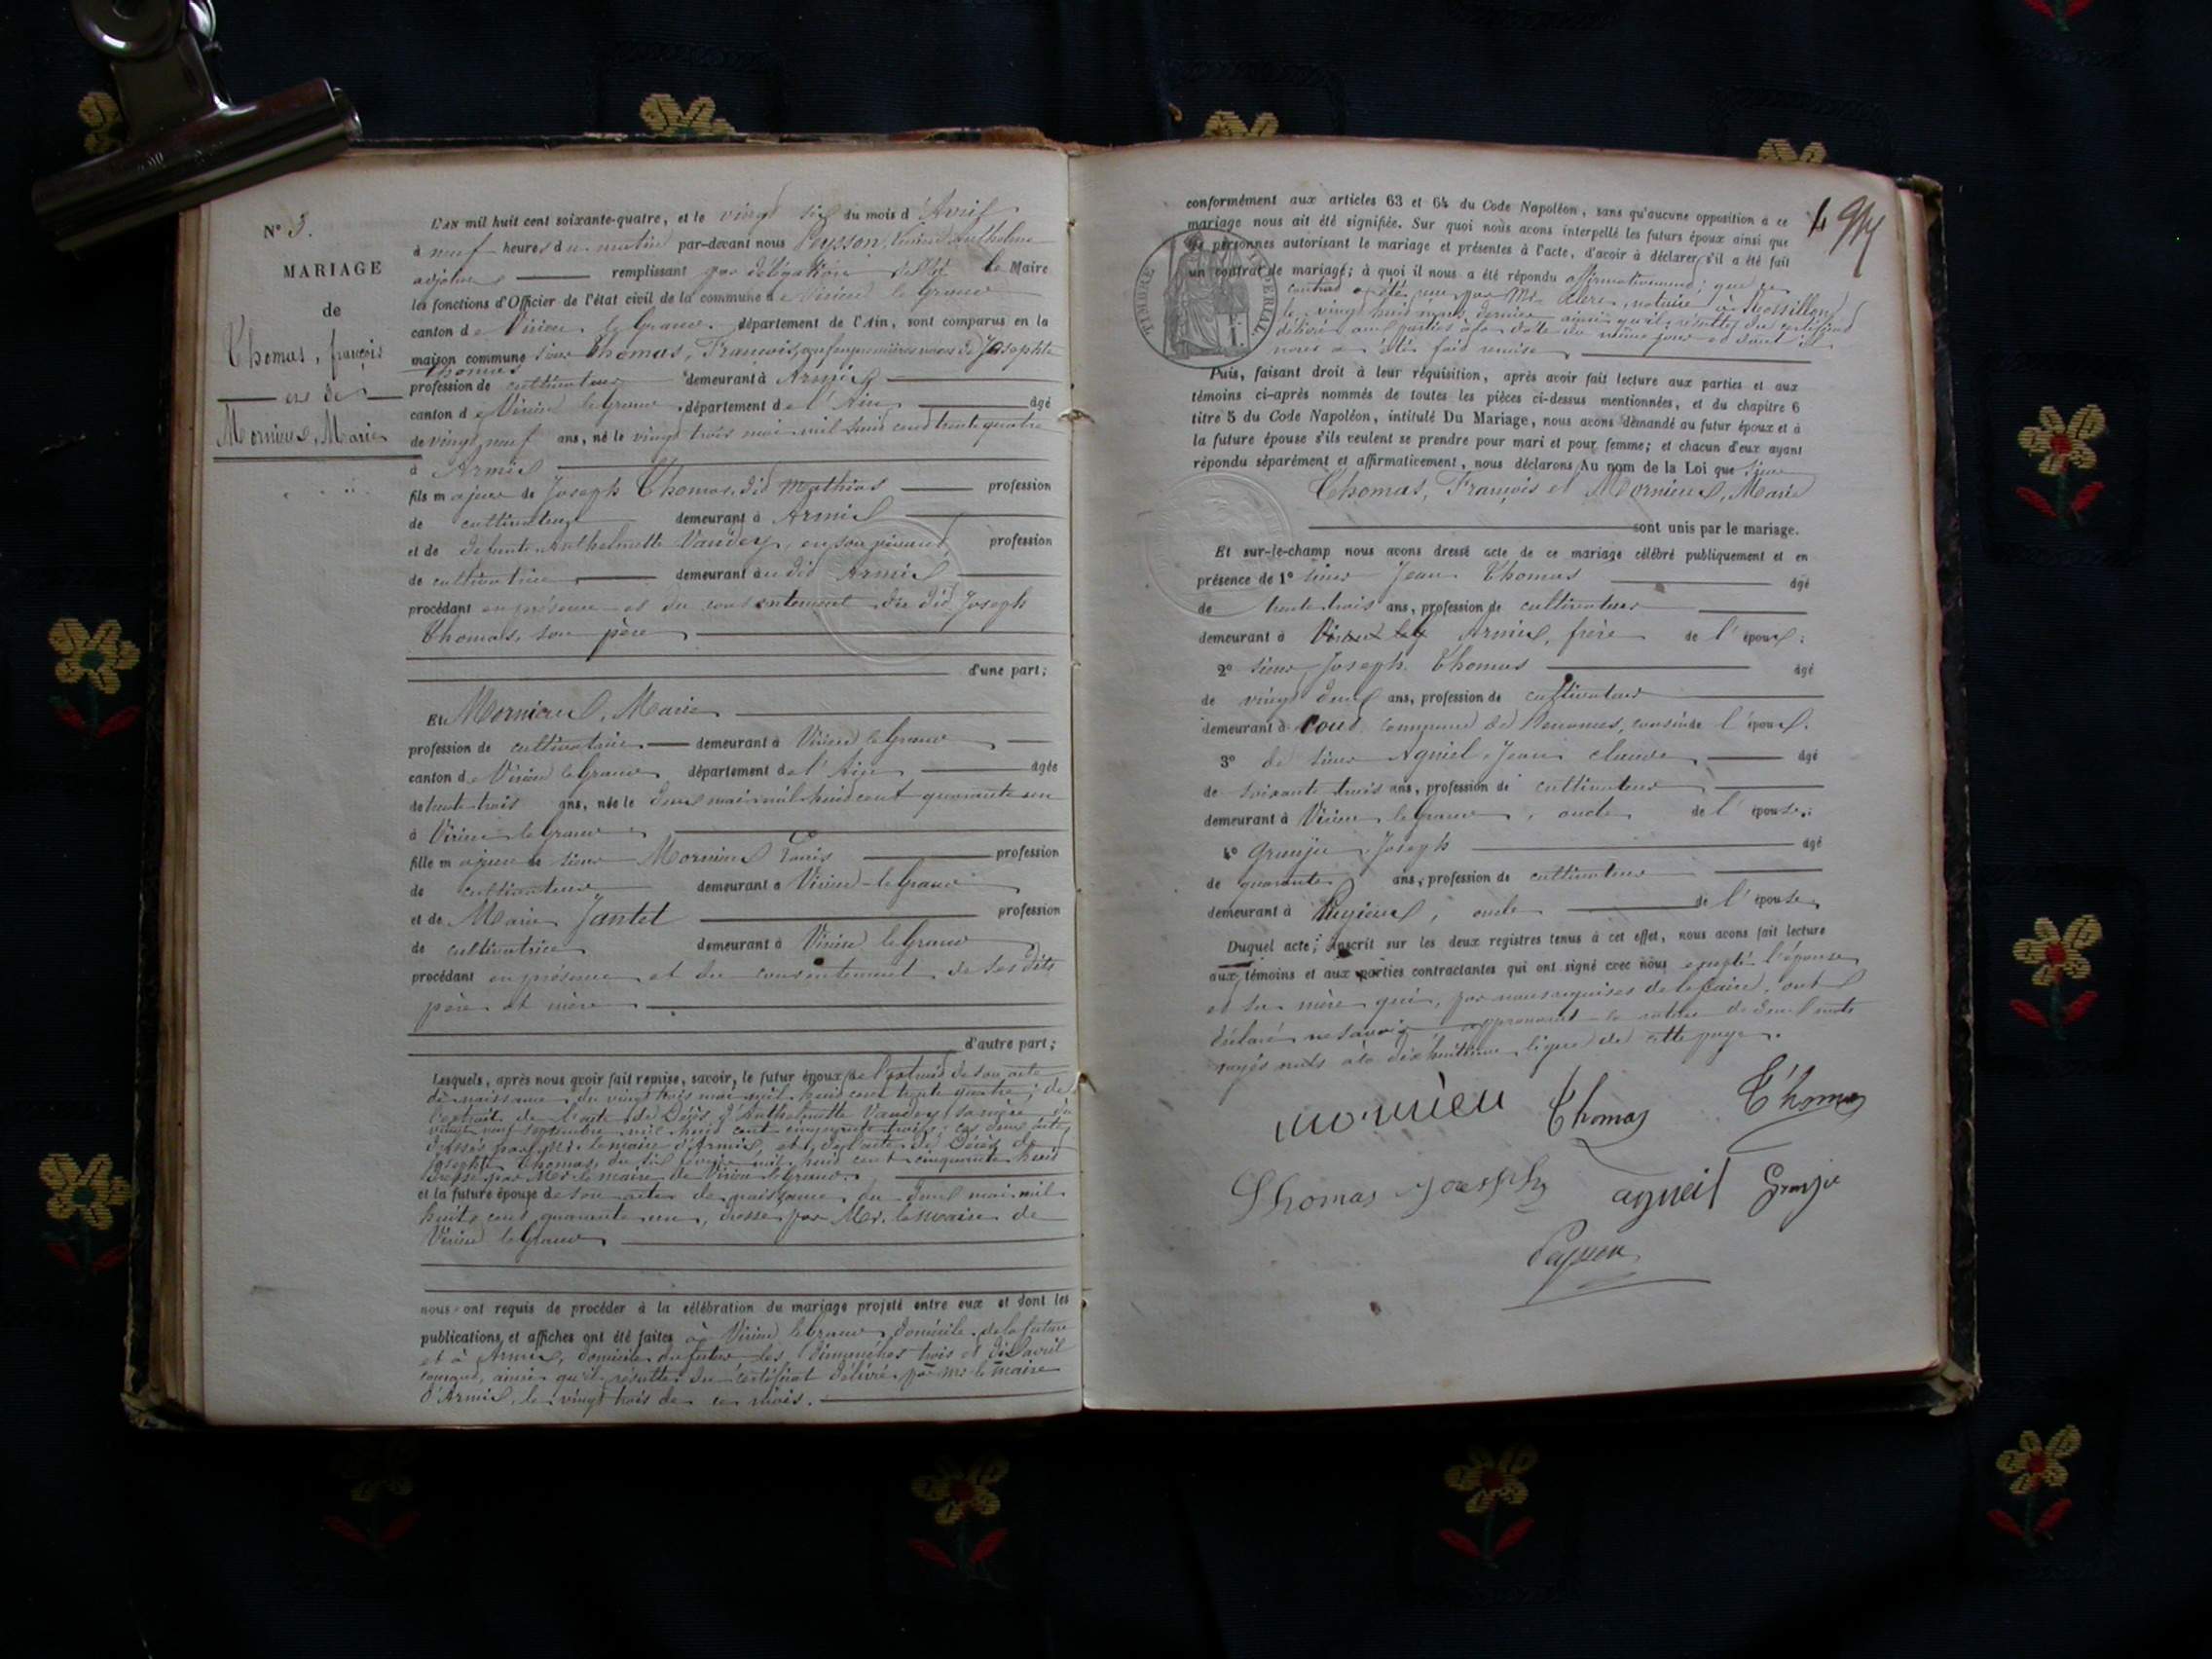 N° 3.
MARIAGE
de
Thomas, françois
et de
Mornieux, Marie
L'AN mil huit cent soixante-quatre, et le vingt six du mois d'Avril
à neuf heures du matin par-devant nous Peysson, Anthelme
adjoint remplissant par délégation le Maire
les fonctions d'Officier de l'état civil de la commune de Virieu le Grand
canton de Virieu le Grand. département de l'Ain, sont comparus en la
maison commune sieur Thomas, François, veuf en premières noces de Josephte
Thomas
profession de cultivateur demeurant à Armix
canton de Virieu le Grand, département de l'Ain âgé
de vingt neuf ans, né le vingt trois mai mil huit cent trente quatre
à Armix
fils majeur de Joseph Thomas, dit Mathias profession
de cultivateur demeurant à Armix
et de défunte Anthelmette Vaudey, en son vivant profession
de cultivatrice demeurant au dit Armix
procédant en présence et du consentement du dit Joseph
Thomas, son père
d'une part;
Et Mornieux, Marie
profession de cultivatrice demeurant à Virieu le Grand
canton de Virieu le Grand département de l'Ain âgée
de trente-trois ans, née le deux mai mil huit cent quarante un
à Virieu le Grand
fille majeure de sieur Mornieux Louis profession
de cultivateur demeurant à Virieu-le-Grand
et de Marie Jantet profession
de cultivatrice demeurant à Virieu le Grand
procédant en présence et du consentement de ses dits
père et mère
d'autre part;
Lesquels, après nous avoir fait remise, savoir, le futur époux de l'extrait de son acte
de naissance, du vingt trois mai mil huit cent trente quatre; de
l'extrait de l'acte de Décès d'Anthelmette Vaudey sa mère du
vingt neuf septembre mil huit cent cinquante trois; ces deux actes
dressés par Mr. le maire d'Armix, et de l'acte de Décès de
Josephte Thomas, du six février mil huit cent cinquante huit
dressé par Mr. le maire de Virieu le Grand.
et la future épouse de son acte de naissance du deux mai mil
huit cent quarante un, dressé par Mr. le maire de
Virieu le Grand
nous ont requis de procéder à la célébration du mariage projeté entre eux et dont les
publications et affiches ont été faites à Virieu le Grand, domicile de la future
et à Armix, domicile du futur les dimanches trois et dix avril
courant, ainsi qu'il résulte du certificat délivré par mr le maire
d'Armix, le vingt trois de ce mois.
4
conformément aux articles 63 et 64 du Code Napoléon, sans qu'aucune opposition a ce
mariage nous ait été signifiée. Sur quoi nous avons interpellé les futurs époux ainsi que
les personnes autorisant le mariage et présentes à l'acte, d'avoir à déclarer s'il a été fait
un contrat de mariage; à quoi il nous a été répondu affirmativement; que ce
contrat a été reçu par Me notaire à Rossillon
le vingt huit mars dernier ainsi qu'il résulte du certificat
délivré aux parties à la date du même jour et dont il
nous a été fait remise
TIMBRE IMPERIAL
Puis, faisant droit à leur réquisition, après avoir fait lecture aux parties et aux
témoins ci-après nommés de toutes les pièces ci-dessus mentionnées, et du chapitre 6
titre 5 du Code Napoléon, intitulé Du Mariage, nous avons demandé au futur époux et à
la future épouse s'ils veulent se prendre pour mari et pour femme; et chacun d'eux ayant
répondu séparément et affirmativement, nous déclarons Au nom de la Loi que sieur
Thomas, François et Mornieux, Marie
sont unis par le mariage.
Et sur-le-champ nous avons dressé acte de ce mariage célébré publiquement et en
présence de 1° sieur Jean Thomas âgé
de trente trois ans, profession de cultivateur
demeurant à Virieu le g Armix, frère de l'époux;
2° sieur Joseph Thomas âgé
de vingt deux ans, profession de cultivateur
demeurant à commune de cousin de l'époux.
3° de sieur Agniel Jean claude âgé
de soixante trois ans, profession de cultivateur
demeurant à Virieu le Grand, oncle de l'épouse;
4° Granju Joseph âgé
de quarante ans, profession de cultivateur
demeurant à Pugieux, oncle de l'épouse,
Duquel acte, inscrit sur les deux registres tenus à cet effet, nous avons fait lecture
aux témoins et aux parties contractantes qui ont signé avec nous excepté l'épouse
et sa mère qui, par nous requises de le faire, ont
déclaré ne savoir, approuvant la rature de deux mots
rayés nuls à la dix huitième ligne de cette page.
mornieu Thomas Thomas
Thomas Joseph agneil Granju
Peysson